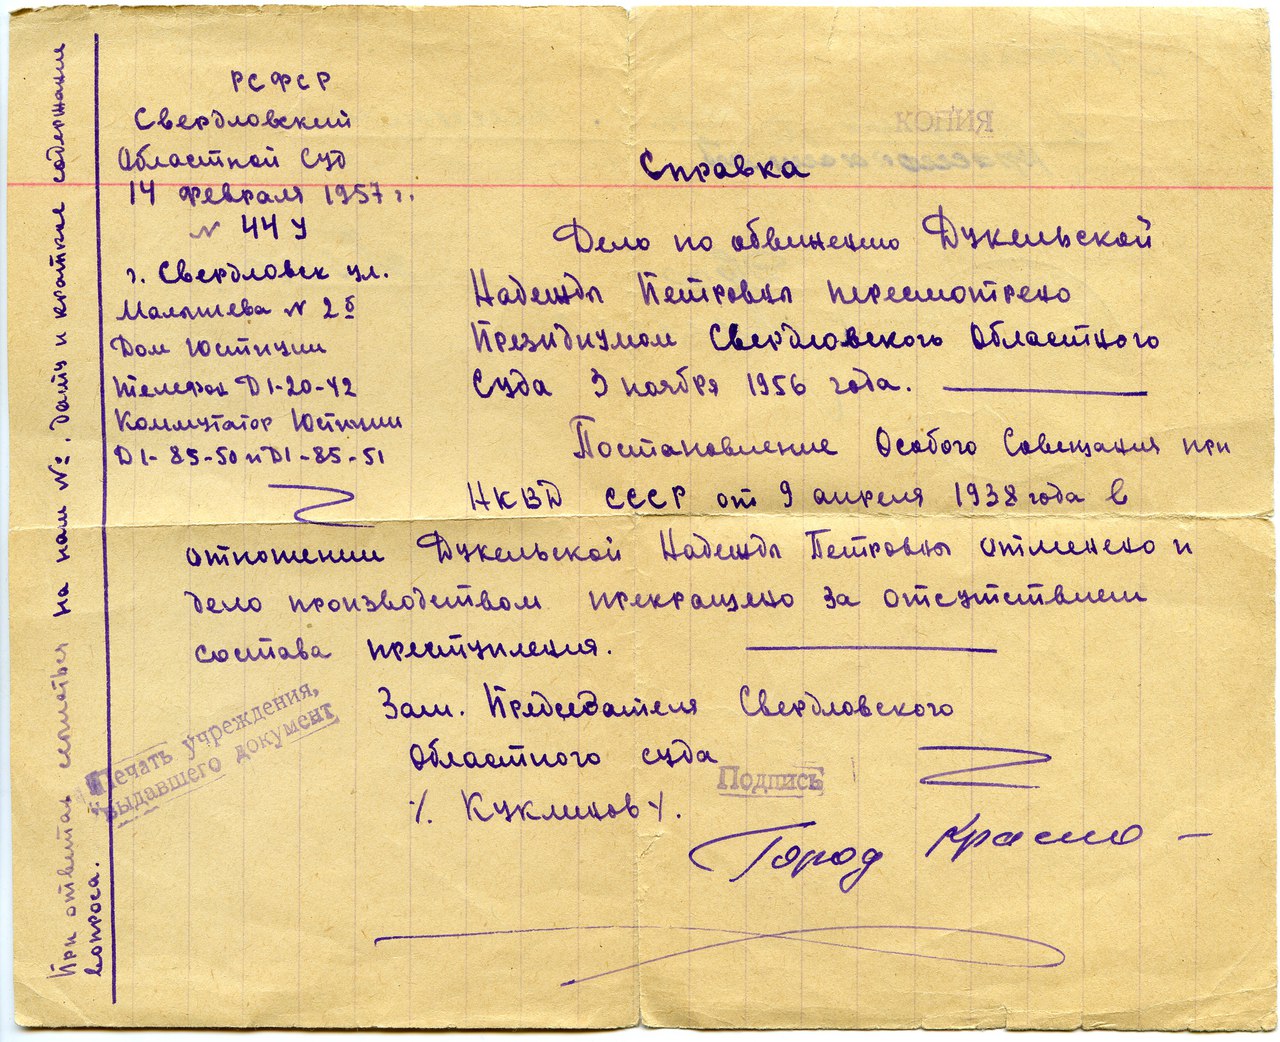 РСФСР
Свердловский
Областной Суд
14 февраля 1957 г.
№ 44 у
г. Свердловск ул.
Малышева № 2б
Дом Юстиции
Телефон Д1-20-42
Коммутатор Юстиции
Д1-85-50 и Д1-85-51
При ответах ссылаться на наш №: дату и краткое содержание
вопроса.
КОПИЯ
Справка
Дело по обвинению Дукельской
Надежды Петровны пересмотрено
Президиумом Свердловского Областного
Суда 3 ноября 1956 года.
Постановление Особого Совещания при
НКВД СССР от 9 апреля 1938 года в
отношении Дукельской Надежды Петровны отменено и
дело производством прекращено за отсутствием
состава преступления.
Зам. Председателя Свердловского
Областного суда
/. Куклинов /.
Печать учреждения,
выдавшего документ
Подпись
Город Красно -